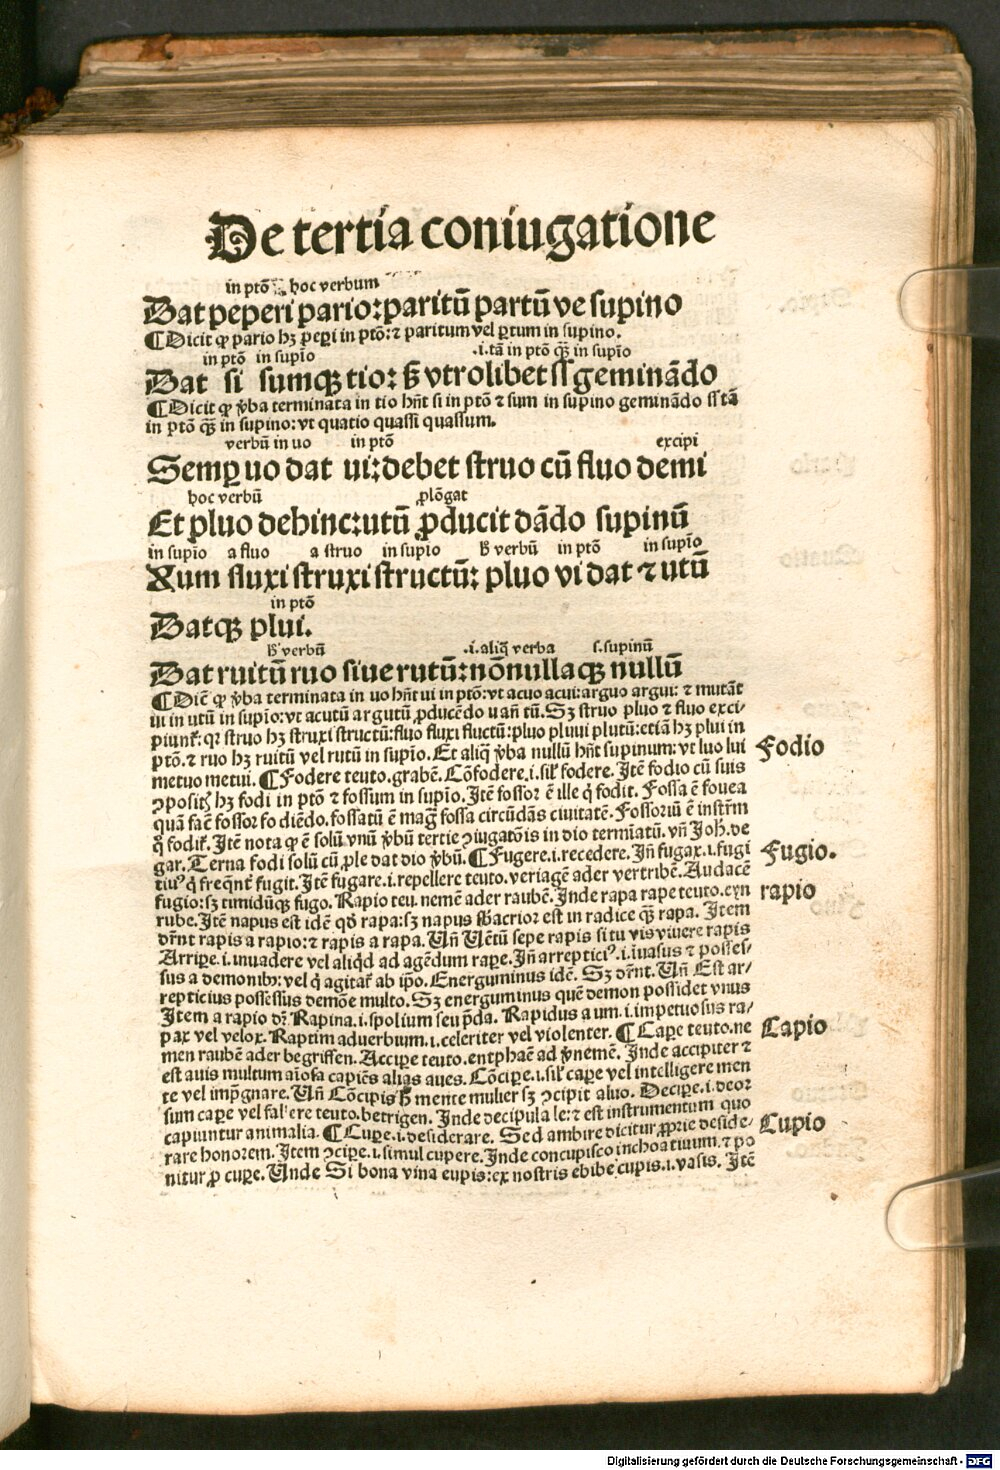 De tertia coniugatione
in ptō hoc verbum
Dat peperi pario: paritū partū ve supino
¶Dicit ꝙ pario hꝫ peꝑi in ptō: ⁊ paritum vel ꝑtum in supino.
in ptō in supīo .i. tā in ptō qꝫ̄ in supīo
Dat si sumqꝫ tio: sꝫ vtrolibet ss geminādo
¶Dicit ꝙ v̄ba terminata in tio hn̄t si in ptō ⁊ sum in supino geminādo ss tā
in ptō qꝫ̄ in supino: vt quatio quassi quassum.
verbū in uo in ptō excipi
Semꝑ uo dat ui: debet struo cū fluo demi
hoc verbū ꝓlōgat
Et pluo dehinc: utū ꝓducit dādo supinū
in supīo a fluo a struo in supīo verbū in ptō in supīo
Xum fluxi struxi structū: pluo vi dat ⁊ utū
in ptō
Datqꝫ plui.
verbū .i. aliq̄ verba s. supinū
Dat ruitū ruo siue rutū: nōnullaqꝫ nullū
¶Dic̄ ꝙ v̄ba terminata in uo hn̄t ui in ptō: vt acuo acui: arguo argui: ⁊ mutāt
ui in utū in supīo: vt acutū argutū ꝓducēdo u an̄ tū. Sꝫ struo pluo ⁊ fluo exci-
piunt̄: qꝛ struo hꝫ struxi structū: fluo fluxi fluctū: pluo pluui plutū: etiā hꝫ plui in
ptō. ⁊ ruo hꝫ ruitū vel rutū in supīo. Et aliq̄ v̄ba nullū hn̄t supinum: vt luo lui
metuo metui. ¶Fodere teuto. grabē. Cōfodere .i. sil̄ fodere. Itē fodio cū suis
Fodio
ꝯpositꝭ hꝫ fodi in ptō ⁊ fossum in supīo. Itē fossor ē ille q̇ fodit. Fossa ē fouea
quā fac̄ fossor fodiēdo. fossatū ē maḡ fossa circūdās ciuitatē. Fossoriū ē instr̄m
q̊ fodit̄. Itē nota ꝙ ē solū vnū v̄bū tertie ꝯiugatōis in dio termīatū. vn̄ Joh̄. de
gar. Terna fodi solū cū ꝓle dat dio v̄bū. ¶Fugere .i. recedere. Jn̄ fugax .i. fugi
Fugio.
tiuꝰ q̇ freq̄nt̄ fugit. Itē fugare .i. repellere teuto. veriagē ader vertribē. Audacē
fugio: sꝫ timidūqꝫ fugo. Rapio teu. nemē ader raubē. Inde rapa rape teuto. eyn
rapio
rube. Itē napus est idē qd̄ rapa: sꝫ napus acrior est in radice qꝫ̄ rapa. Item
dr̄nt rapis a rapio: ⁊ rapis a rapa. Vn̄ sepe rapis si tu vis viuere rapis
Arriꝑe .i. inuadere vel aliqd̄ ad agēdum raꝑe. Jn̄ arrepticiꝰ .i. iuasus ⁊ posses-
sus a demonibꝫ: vel q̇ agitat̄ ab ip̄o. Energuminus idē. Sꝫ dr̄nt. Vn̄ Est ar-
repticius possessus demōe multo. Sꝫ energuminus quē demon possidet vnus
Item a rapio dr̄. Rapina .i. spolium seu p̄da. Rapidus a um .i. impetuosus ra-
pax vel velox. Raptim aduerbium .i. celeriter vel violenter. ¶Caꝑe teuto. ne
Capio
men raubē ader begriffen. Acciꝑe teuto. entphaē ad v̄nemē. Inde accipiter ⁊
est auis multum aīosa capiēs alias aues. Cōciꝑe .i. sil̄ caꝑe vel intelligere men
te vel imp̄gnare. Vn̄ Cōcipis mente mulier sꝫ ꝯcipit aluo. Deciꝑe .i. deor
sum caꝑe vel fallere teuto. betrigen. Inde decipula le: ⁊ est instrumentum quo
capiuntur animalia. ¶Cuꝑe .i. desiderare. Sed ambire dicitur ꝓprie deside-
Cupio
rare honorem. Item ꝯciꝑe .i. simul cupere. Inde concupisco inchoatiuum. ⁊ po
nitur ꝓ cuꝑe. Unde Si bona vina cupis: ex nostris ebibe cupis .i. vasis. Itē
Digitalisierung gefördert durch die Deutsche Forschungsgemeinschaft - DFG